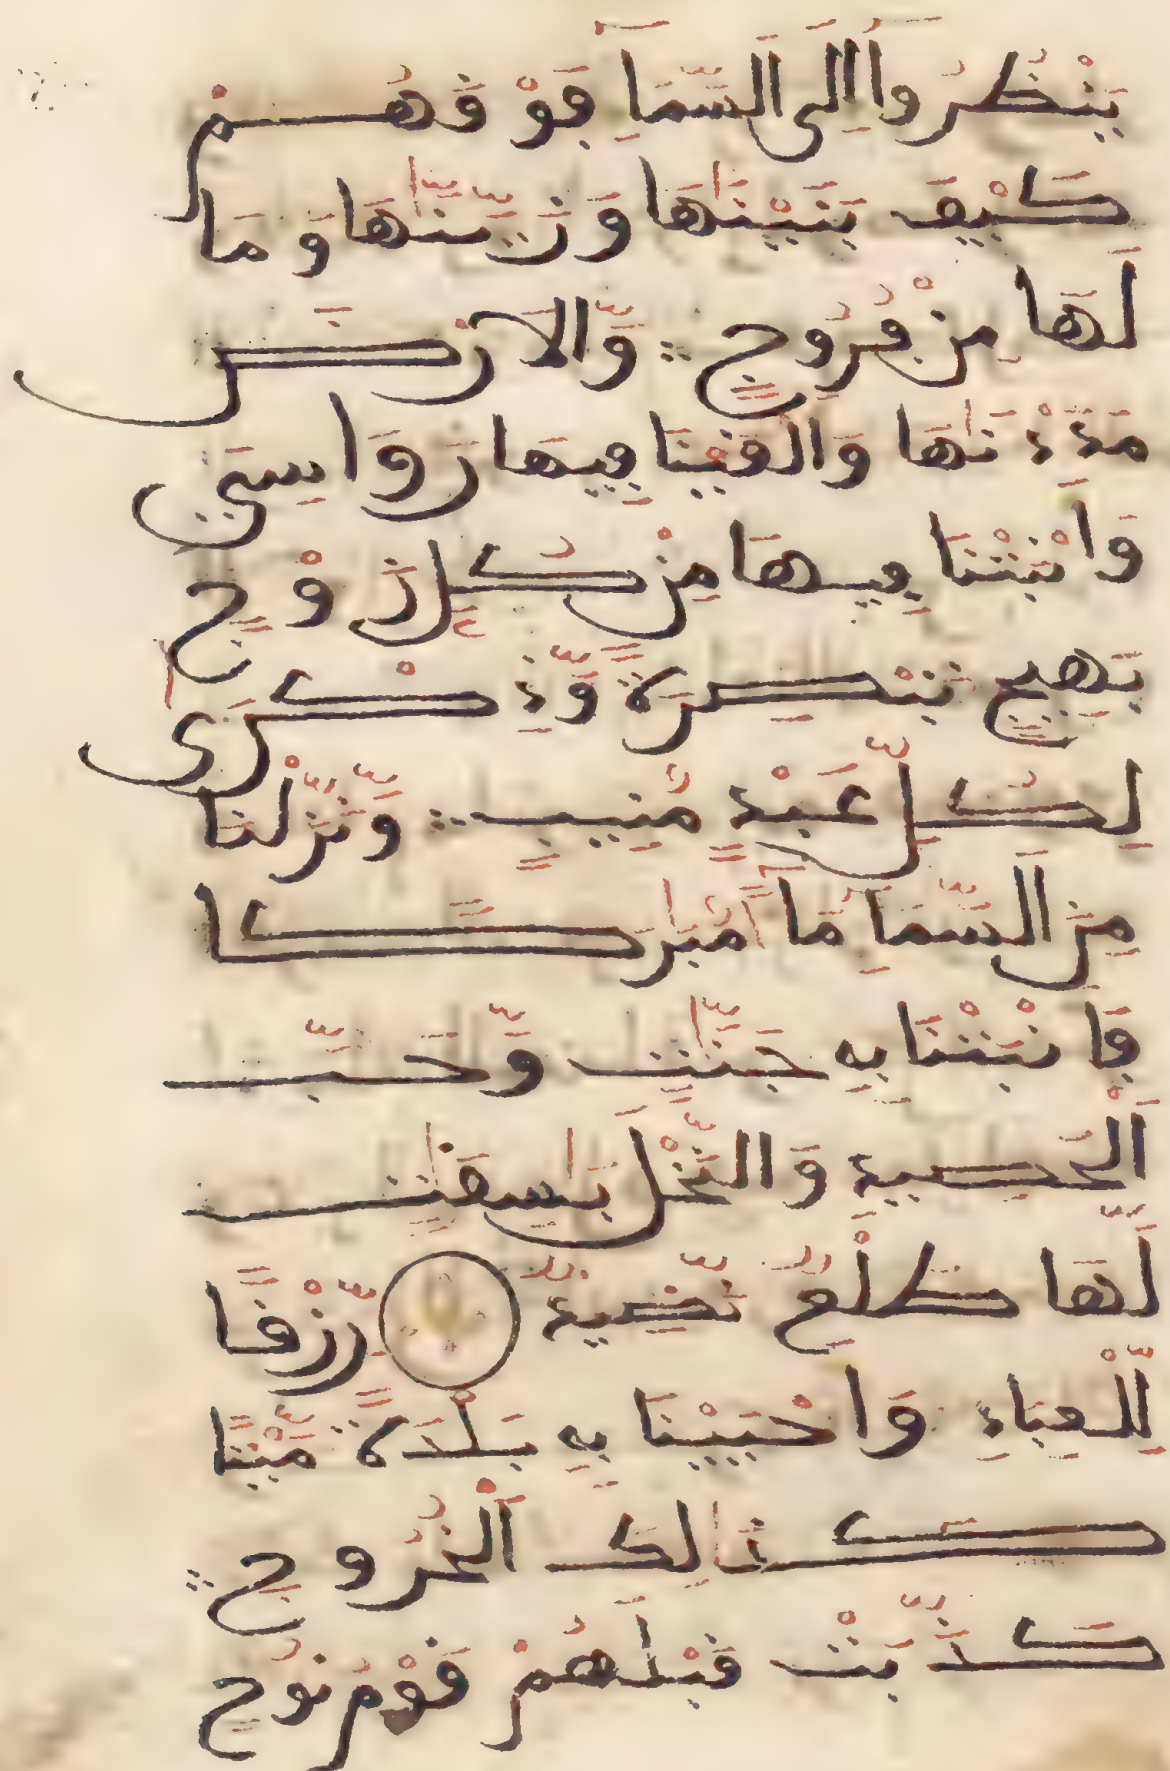 يَنْظُرُوا إِلَى اَلسَّمَآ فَوْقَهُمْ
كَيْفَ بَنَيْنَٰهَا وَزَيَّنَّٰهَا وَمَا
لَهَا مِن فُرُوجٍ ۞ وَّالَارْضَ
مَدَدْنَٰهَا وَأَلْقَيْنَا فِيهَا رَوَاسِيَ
وَأَنْبَتْنَا فِيهَا مِنْ كُلِّ زَوْجٍ
بَهِيجٍ تَبْصِرَةً وَّذِكْرَىٰ
لِكُلِّ عَبْدٍ مُّنِيبٍ ۞ وَّنَزَّلْنَا
مِنَ اَلسَّمَآ مَآءً مُّبَٰرَكًا
فَأَنْبَتْنَا بِهِ جَنَّٰتٍ وَّحَبَّ
اَلْحَصِيدِ وَالنَّخْلَ بَاسِقَٰتٍ
لَّهَا طَلْعٌ نَّضِيدٌ ۞ رِّزْقًا
لِّلْعِبَادِ وَأَحْيَيْنَا بِهِ بَلْدَةً مَّيْتًا
كَذَٰلِكَ اَلْخُرُوجُ ۞
كَذَّبَتْ قَبْلَهُمْ قَوْمُ نُوحٍ